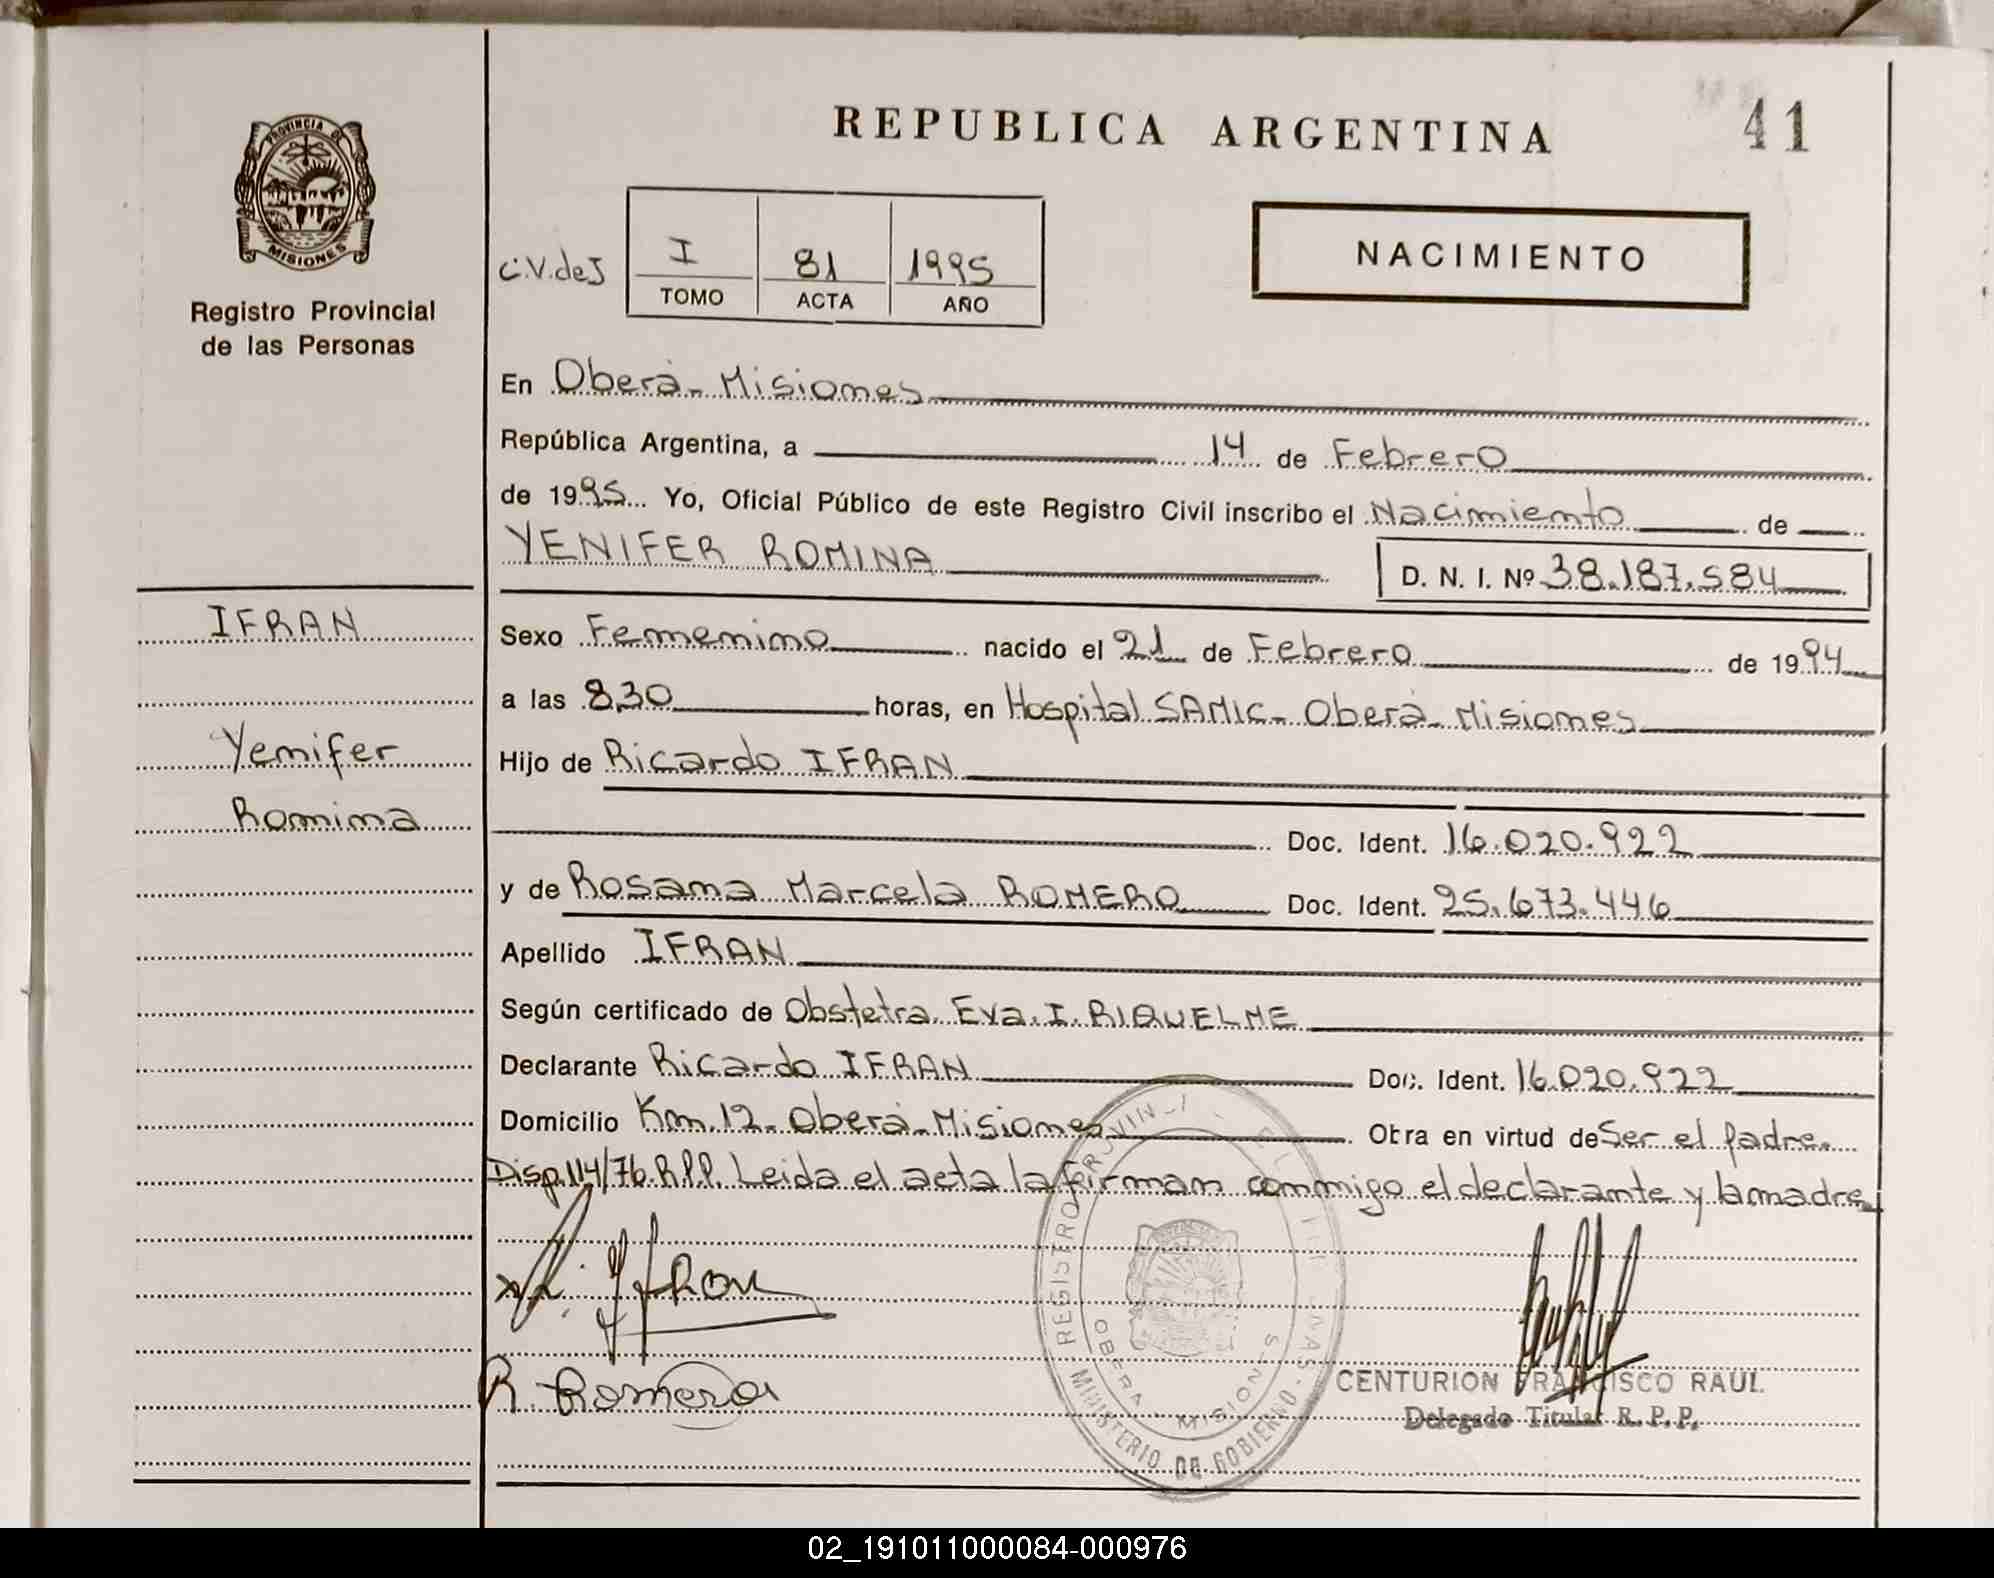 REPUBLICA ARGENTINA
41
PROVINCIA DE
MISIONES
Registro Provincial
de las Personas
C.V.deJ
I 81 1995
TOMO ACTA AÑO
NACIMIENTO
En Oberá - Misiones
República Argentina, a 14 de Febrero
de 1995 Yo, Oficial Público de este Registro Civil inscribo el Nacimiento de
YENIFER ROMINA D. N. I. Nº 38.187.584
IFRAN
Yenifer
Romina
Sexo Femenino nacido el 21 de Febrero de 1994
a las 8,30 horas, en Hospital SAMIC - Oberá - Misiones
Hijo de Ricardo IFRAN
Doc. Ident. 16.020.922
y de Rosana Marcela ROMERO Doc. Ident. 25.673.446
Apellido IFRAN
Según certificado de Obstetra Eva. I. RIQUELME
Declarante Ricardo IFRAN Doc. Ident. 16.020.922
Domicilio Km. 12 - Oberá - Misiones Obra en virtud de Ser el padre.
Disp. 114/76.R.P.P. Leida el acta la firman conmigo el declarante y la madre
R. Romero
REGISTRO
OBERA MISIONES
MINISTERIO DE GOBIERNO
CENTURION FRANCISCO RAUL
Delegado Titular R. P. P.
02_191011000084-000976